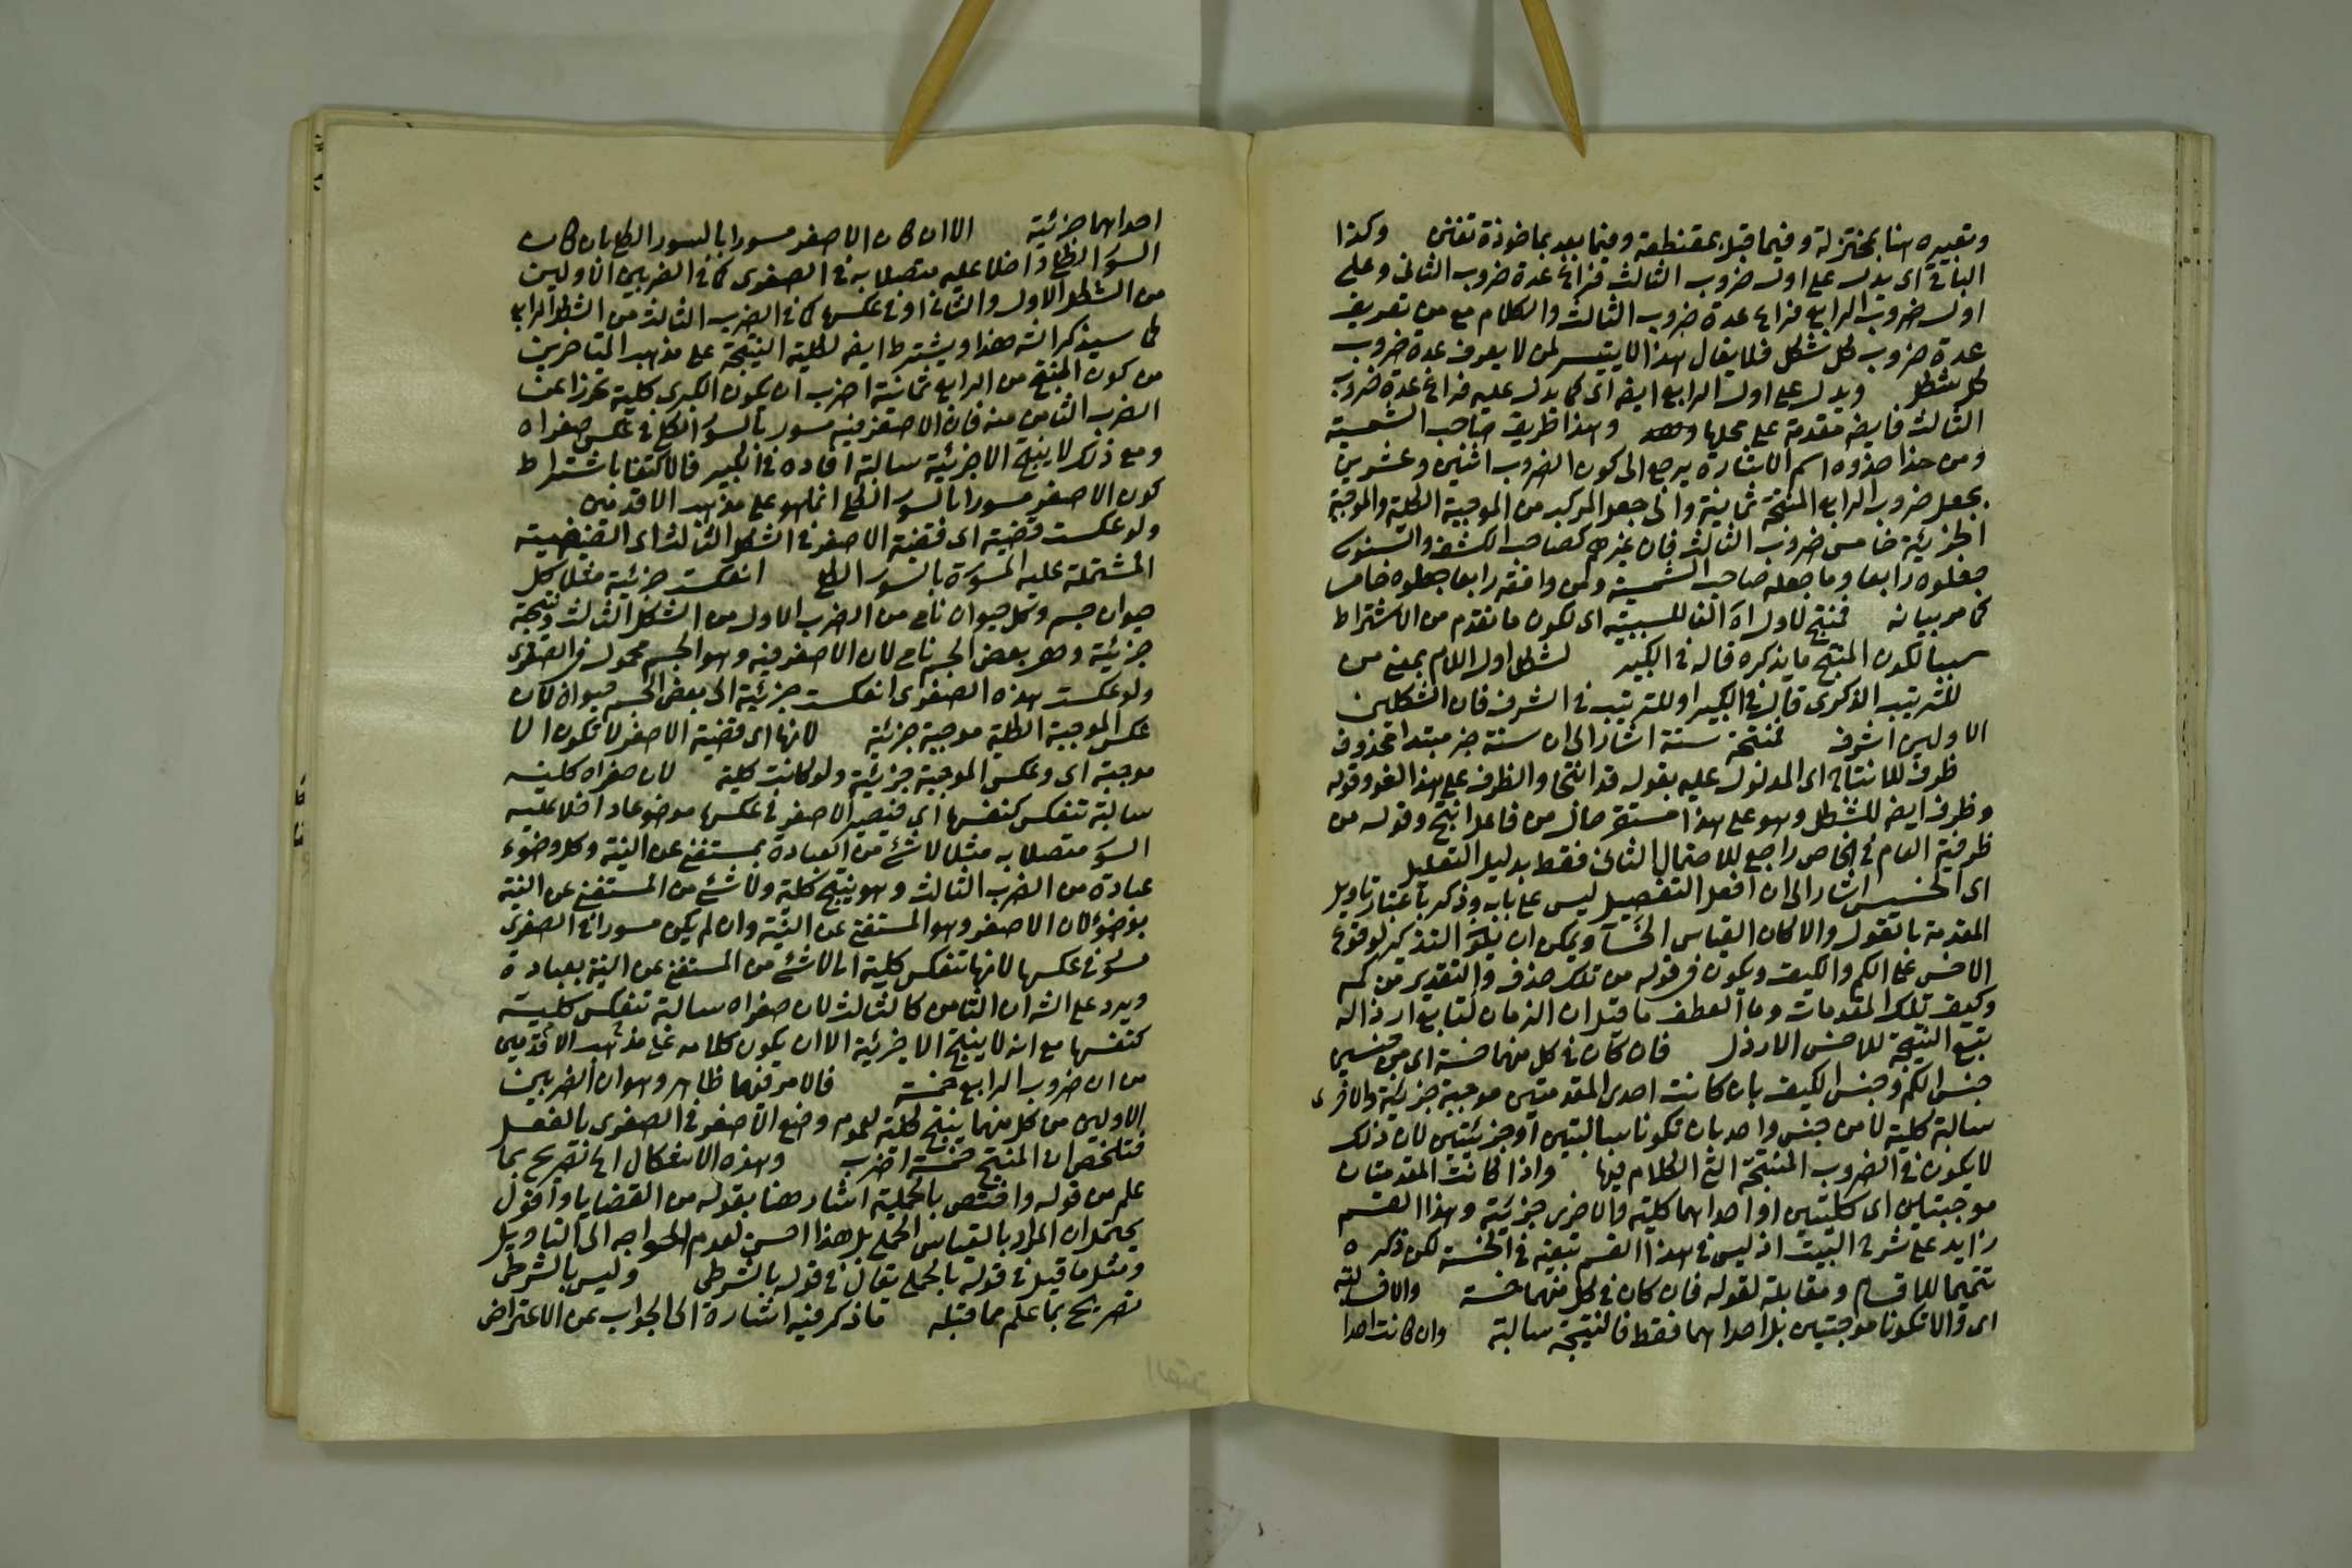 وتعبيره هنا بمختزلة وفيما قبل بمقتطعة وفيما بعد بماخوذة تفنن وكذا
الباقي اى يدل على اول ضروب الثالث فراغ عدة ضروب الثانى وعلى
اول ضروب الرابع فراغ عدة ضروب الثالث والكلام مع من تعريف
عدة ضروب كل شكل فلا يقال هذا لا يتيسر لمن لا يعرف عدة ضروب
كل شكل ويدل على اول الرابع ايضه اى كما يدل عليه فراغ عدة ضروب
الثالث فايضه مقدمة على محلها وهذا طريق صاحب الشمسية
ومن حذا حذوه اسم الاشارة يرجع الى كون الضروب اثنين وعشرين
بجعل ضروب الرابع المنتجة ثمانية والى جعل المركب من الموجبة الكلية والموجبة
الجزئية خامس ضروب الثالث فان غيرهم كصاحب الكشف والسنوسى
جعلوه رابعا وما جعله صاحب الشمسية ومن وافقه رابعا جعلوه خامسا
كما مر بيانه فمنتج لاول اه الفا للسببية اى لكون ما تقدم من الاشتراط
سببا لكون المنتج ما يذكره قاله فى الكبير لشكل اول اللام بمعنى من
للترتيب الذكرى قال فى الكبير او للترتيب فى الشرف فان الشكلين
الاولين اشرف فمنتجة ستة اشار الى ان ستة خبر مبتدا محذوف
ظرف للانتاج اى المدلول عليه بقوله قد انتجا والظرف على هذا لغو وقوله
وظرف ايضه للشكل وهو على هذا مستقر حال من فاعل انتج وقوله من
ظرفية العام فى الخاص راجع للاحتمال الثانى فقط بدليل التعليل
اى الخسيس اشار الى ان افعل التفضيل ليس على بابه وذكر باعتبار تاويل
المقدمة بالقول والا كان القياس الخسآ ويمكن ان يكو التذكير لوقوع
الاخس على الكم والكيف ويكون فى قوله من تلك حذف والتقدير من كم
وكيف تلك المقدمات وما العطف ما قيل ان الزمان لتابع ارذاله
تبع النتيجة للاخس الارذل فان كان فى كل منهما خسة اى من جنسى
جنس الكم وجنس الكيف بان كانت احدى المقدمتين موجبة جزئية والاخرى
سالبة كلية لا من جنس واحد بان تكونا سالبتين او جزئيتين لان ذلك
لا يكون فى الضروب المنتجة التى الكلام فيها واذا كانت المقدمتان
موجبتين اى كليتين او احداهما كلية والاخرى جزئية وهذا القسم
زايد على شرح البيت اذ ليس فى هذا القسم تبعية فى الخسة لكن ذكره
تتميما للاقسام ومقابلة لقوله فان كان فى كل منهما خسة والا فسالبة
اى والا تكونا موجبتين بل احداهما فقط فالنتيجة سالبة وان كانت احدا
احداهما جزئية الا ان كان الاصغر مسورا بالسور الكلى بان كان
السور الكلى داخلا عليه متصلا به فى الصغرى كما فى الضربين الاولين
من الشكل الاول والثانى او فى عكسها كما فى الضرب الثالث من الشكل الرابع
كما سيذكر انه هذا ويشترط ايضه لكلية النتيجة على مذهب المتاخرين
من كون المنتج من الرابع ثمانية اضرب ان يكون الكبرى كلية تحرزا عن
الضرب الثامن منه فان الاصغر فيه مسور بالسور الكلى فى عكس صغراه
ومع ذلك لا ينتج الا جزئية سالبة افاده فى الكبير فالاكتفا باشتراط
كون الاصغر مسورا بالسور الكلى انما هو على مذهب الاقدمين
ولو عكست قضية اى قضية الاصغر فى الشكل الثالث اى القضية
المشتملة عليه المسورة بالسور الكلى انعكست جزئية مثلا كل
حيوان جسم وكل حيوان نام من الضرب الاول من الشكل الثالث ونتيجة
جزئية وهو بعض الجسم نام لان الاصغر فيه وهو الجسم محمول فى الصغرى
ولو عكست هذه الصغرى انعكست جزئية الى بعض الجسم حيوان لان
عكس الموجبة الكلية موجبة جزئية لانها اى قضية الاصغر لا تكون الا
موجبة اى وعكس الموجبة جزئية ولو كانت كلية لان صغراه كلية
سالبة تنعكس كنفسها اى فيصير الاصغر فى عكسها موضوعا داخلا عليه
السور متصلا به مثلا لا شئ من العبادة بمستغن عن النية وكل وضوء
عبادة من الضرب الثالث وهو ينتج كلية ولا شئ من المستغن عن النية
بوضوء لان الاصغر وهو المستغن عن النية وان لم يكن مسورا فى الصغرى
مسور فى عكسها لانها تنعكس كلية الى لا شئ من المستغن عن النية بعبادة
ويرد على الشه ان الثامن كالثالث لان صغراه سالبة تنعكس كلية
كنفسها مع انه لا ينتج الا جزئية الا ان يكون كلامه على مذهب الاقدمين
من ان ضروب الرابع خمسة فالامر فيهما ظاهر وهو ان الضربين
الاولين من كل منهما ينتج كلية لعموم وضع الاصغر فى الصغرى بالفعل
فتلخص ان المنتج خمسة اضرب وهذه الاشكال اه تصريح بما
علم من قوله واختص بالحملية اشار هنا بقوله من القضايا واقول
يحتمل ان المراد بالقياس الحملى بل هذا احسن لعدم احواجه الى التاويل
ومثل ما قيل فى قوله بالحملى يقال فى قوله بالشرطى وليس بالشرطى
تصريح بما علم مما قبله فاذكر فيه اشارة الى الجواب عن الاعتراض